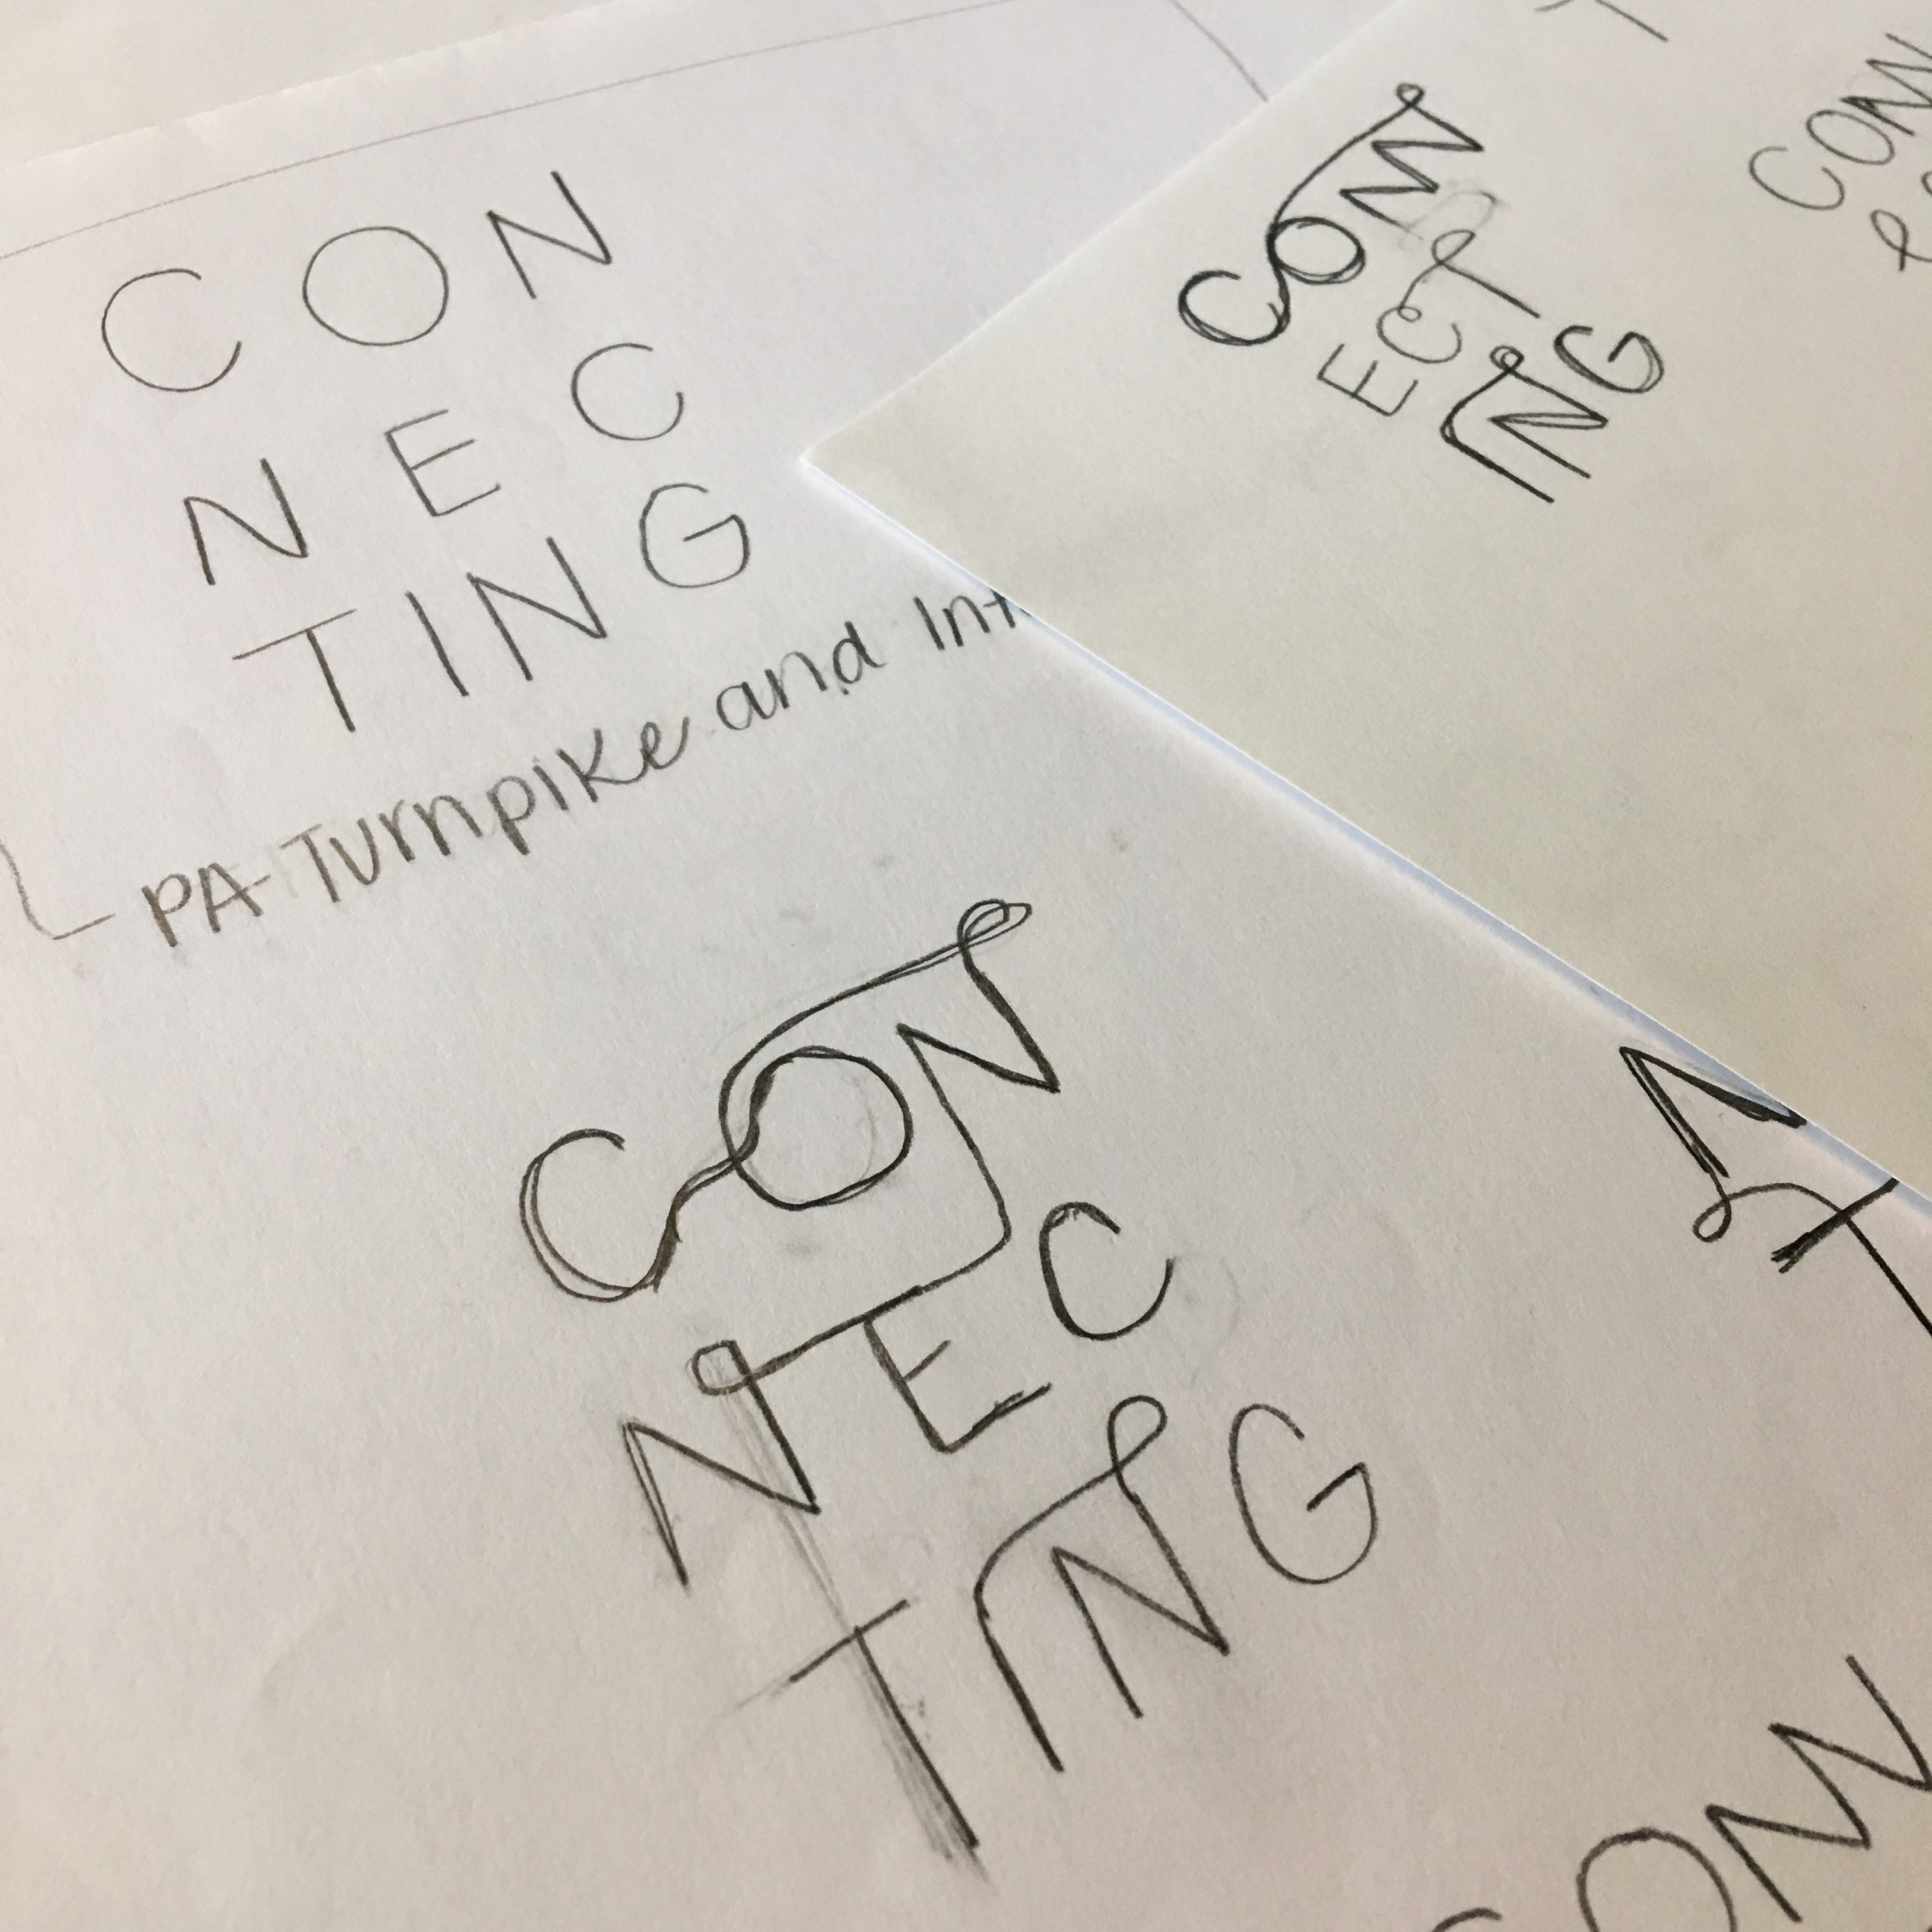 CON
NEC
TING
PA Turnpike and Int
CON
NEC
TING
CONN
ECT
ING
CONN
CONN